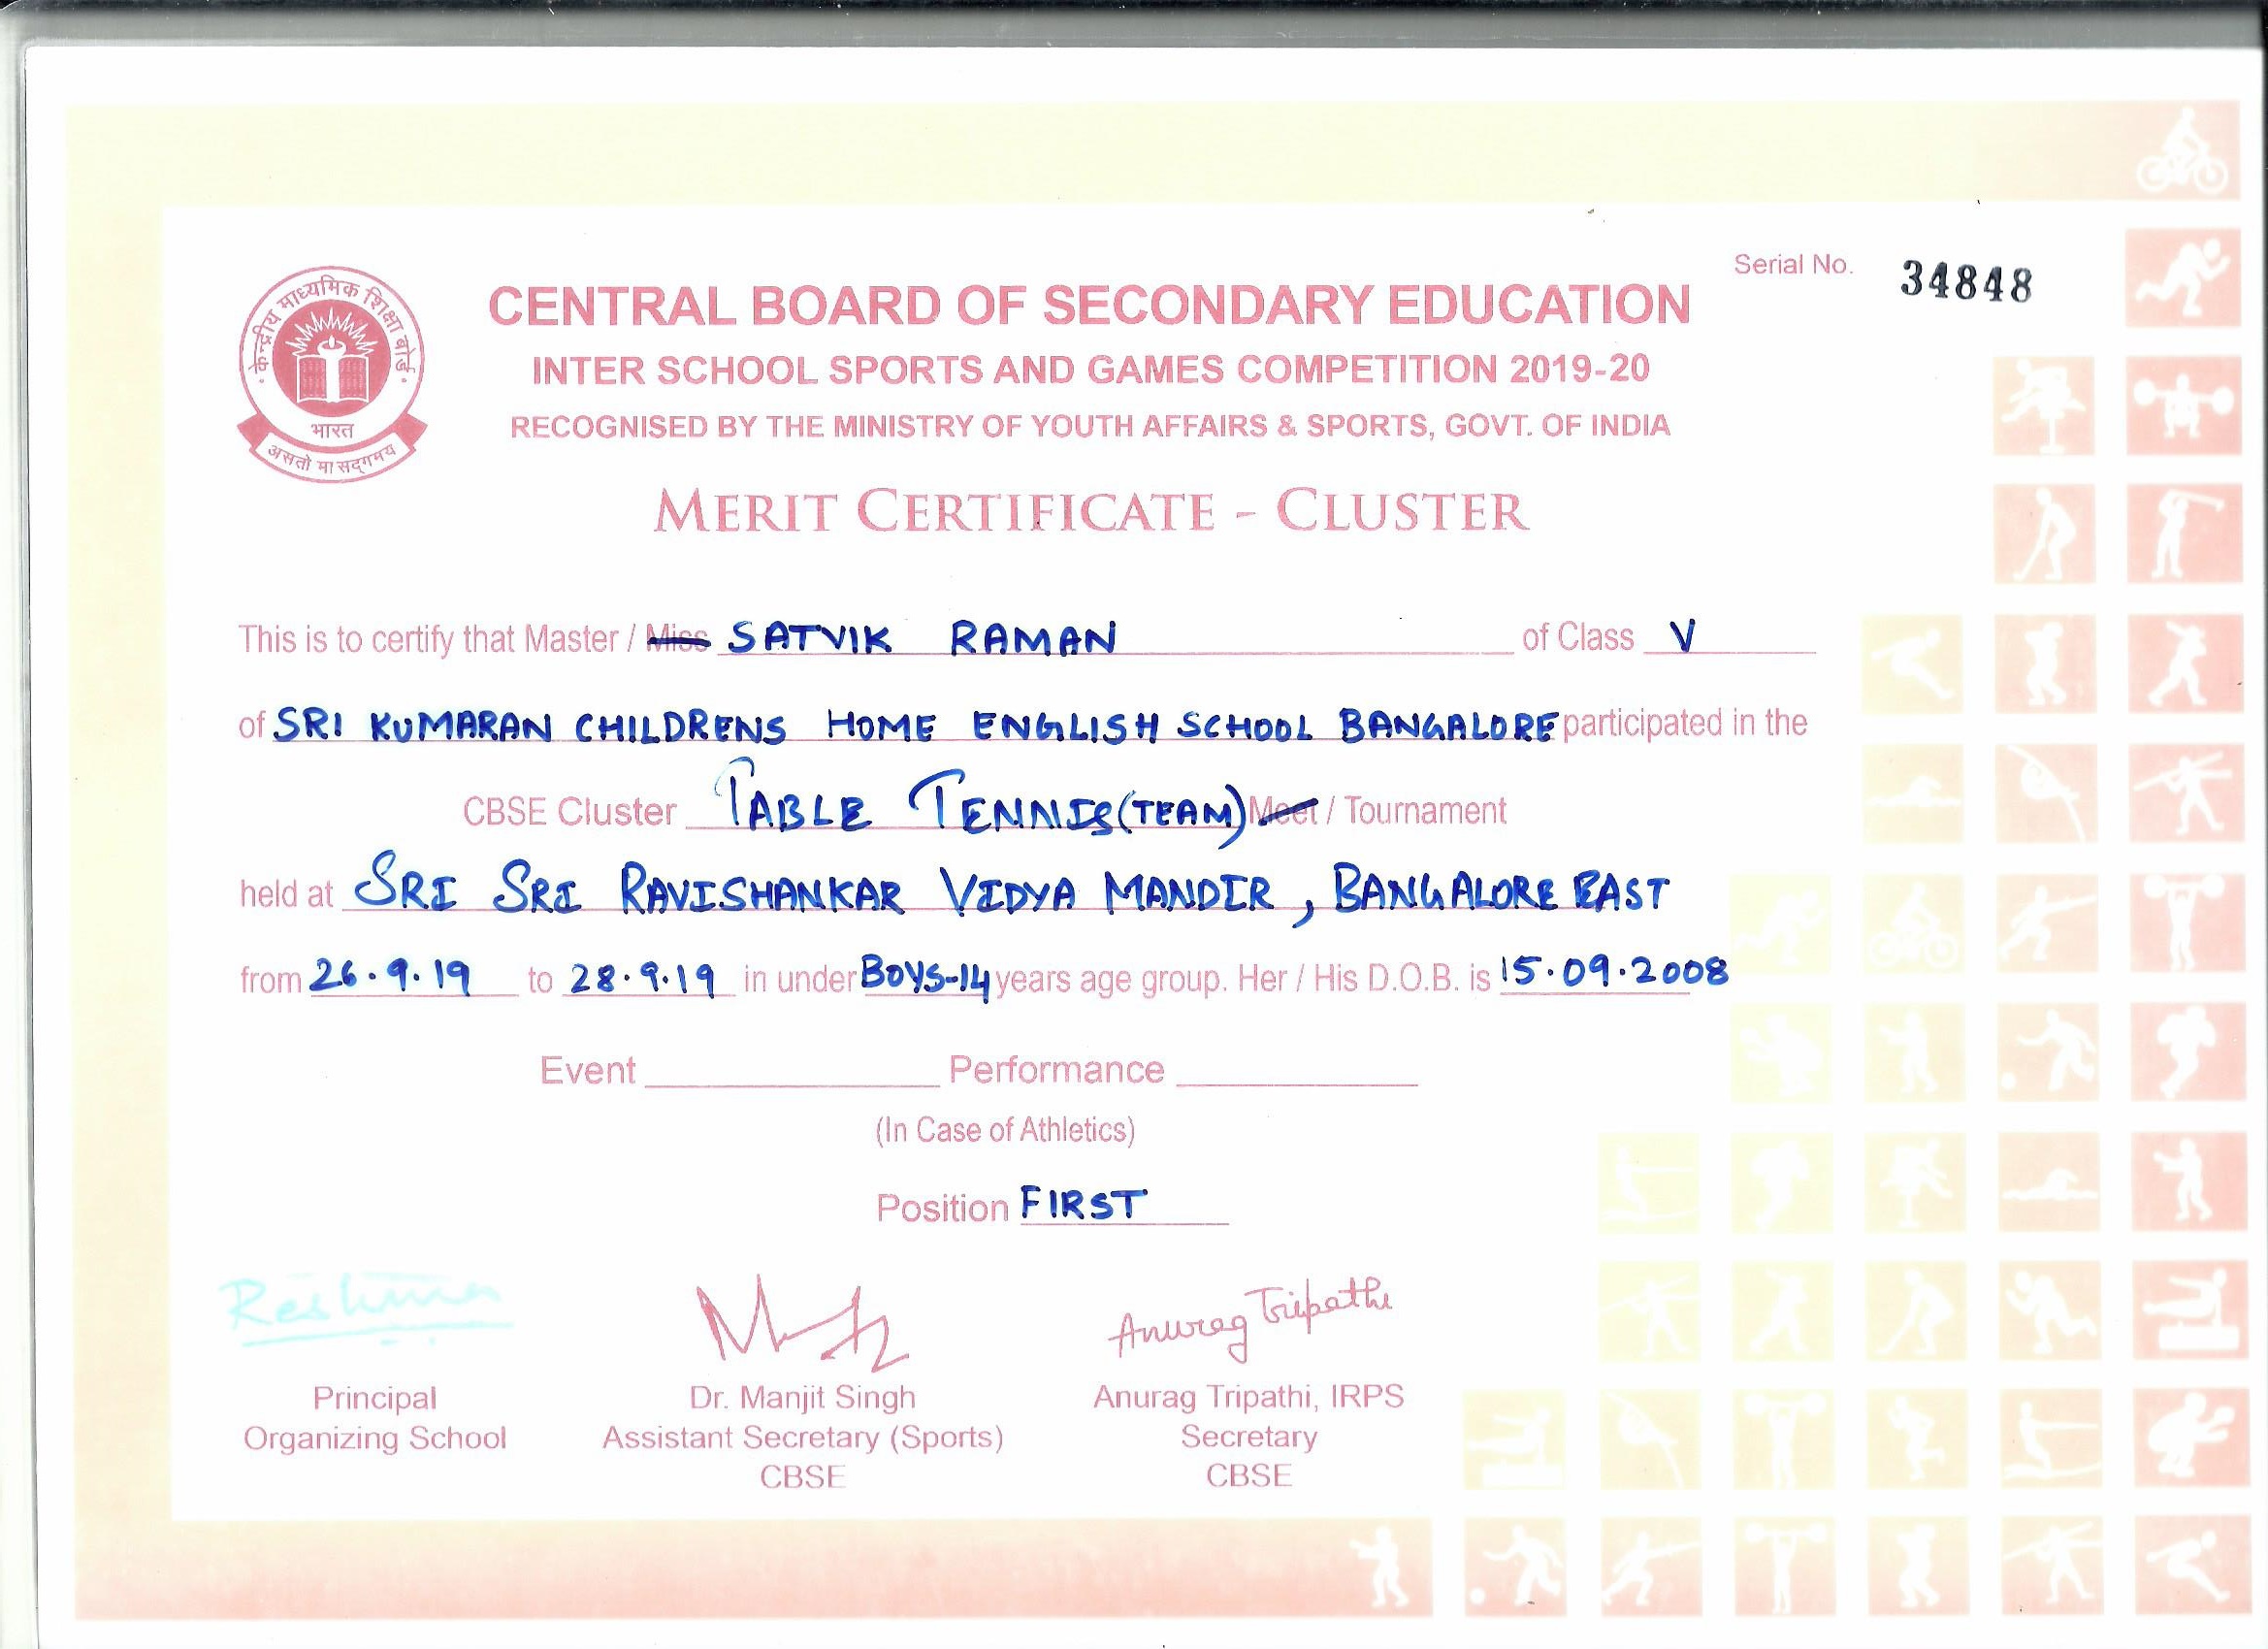 केन्द्रीय माध्यमिक शिक्षा बोर्ड
भारत
असतो मा सद्गमय
Serial No. 34848
CENTRAL BOARD OF SECONDARY EDUCATION
INTER SCHOOL SPORTS AND GAMES COMPETITION 2019-20
RECOGNISED BY THE MINISTRY OF YOUTH AFFAIRS & SPORTS, GOVT. OF INDIA
MERIT CERTIFICATE - CLUSTER
This is to certify that Master / Miss SATVIK RAMAN of Class V
of SRI KUMARAN CHILDRENS HOME ENGLISH SCHOOL BANGALORE participated in the
CBSE Cluster TABLE TENNIS (TEAM) Meet / Tournament
held at SRI SRI RAVISHANKAR VIDYA MANDIR, BANGALORE EAST
from 26.9.19 to 28.9.19 in under BOYS-14 years age group. Her / His D.O.B. is 15.09.2008
Event Performance
(In Case of Athletics)
Position FIRST
Reshma
Anurag Tripathi
Principal
Organizing School
Dr. Manjit Singh
Assistant Secretary (Sports)
CBSE
Anurag Tripathi, IRPS
Secretary
CBSE